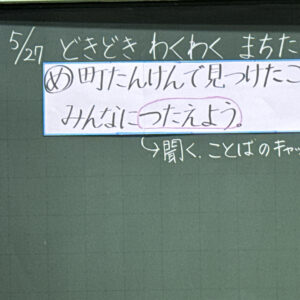 5/27 どきどき わくわく まちた
め 町たんけんで見つけたこ
みんなにつたえよう。
↳聞く.ことばのキャッ